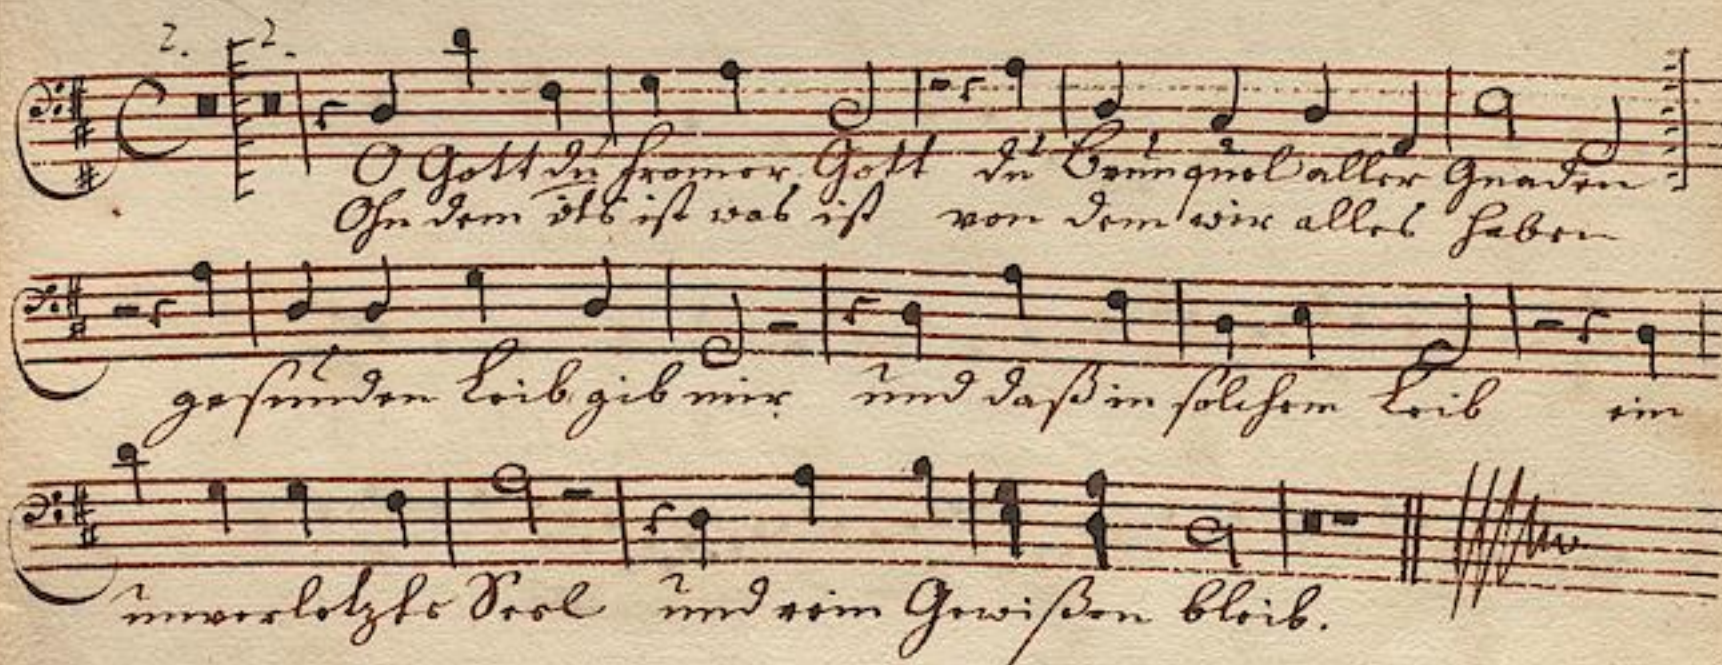 2. 2.
O Gott du fromer Gott du Brunquel aller Gnaden
Ohn dem nts ist was ist von dem wir alles haben
gesunden Leib gib mir und daß in solchem Leib ein
unverletzte Seel und rein Gewißen bleib.